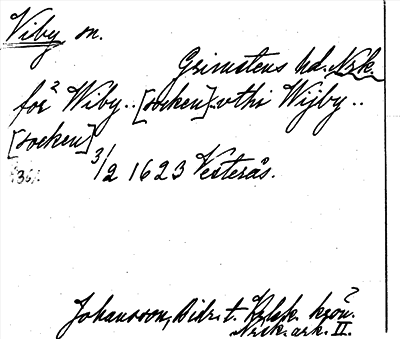 Viby sn.
Grimstens hd. Nrk.
for? Wiby.. [socken] vthi Wijby..
[socken]
3/2 1623 Vesterås.
Johansson, Bidr. t. krön.
Nrk. ark. II.